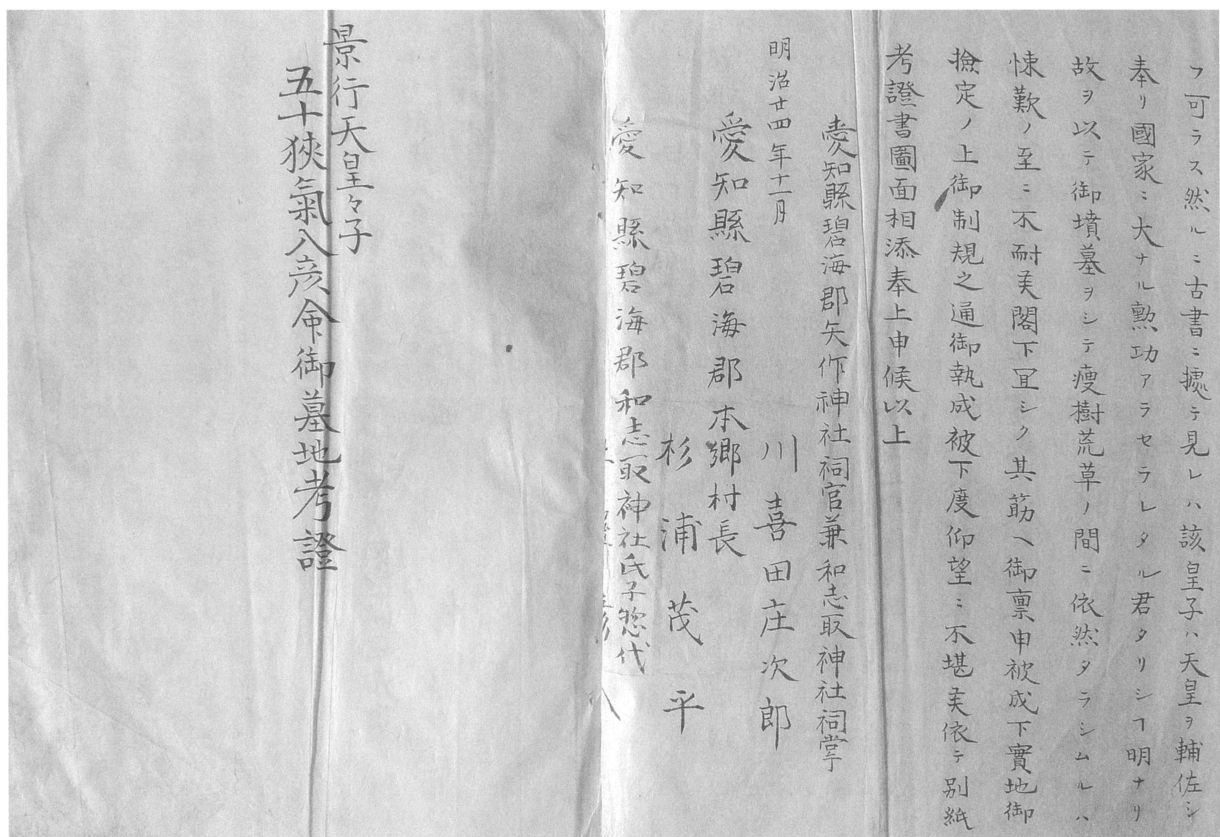 フ可ラス然ルニ古書ニ據テ見レハ該皇子ハ天皇ヲ輔佐シ
奉リ國家ニ大ナル勲功アラセラレタル君タリシヿ明ナリ
故ヲ以テ御墳墓ヲシテ痩樹荒草ノ間ニ依然タラシムルハ
悚歎ノ至ニ不耐矣閣下冝シク其筋ヘ御禀申被成下實地御
撿定ノ上御制規之通御執成被下度仰望ニ不堪矣依テ別紙
考證書圖面相添奉上申候以上
愛知縣碧海郡矢作神社祠官兼和志取神社祠掌
川喜田庄次郎
明治廿四年十一月
愛知縣碧海郡本郷村長
杉浦茂平
愛知縣碧海郡和志取神社氏子惣代
景行天皇々子
五十狹氣入彦命御墓地考證